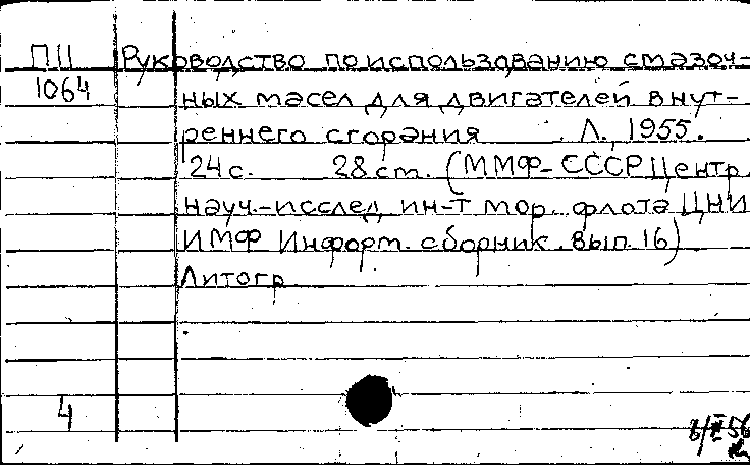 П11 Руководство по использованию смазоч-
1064 ных масел для двигателей внут-
реннего сгорания Л., 1955.
24 с. 28 см. (ММФ-СССР Центр.
науч.-исслед. ин-т мор. флота ЦНИ
ИМФ Информ. сборник. вып. 16)
Литогр.
4